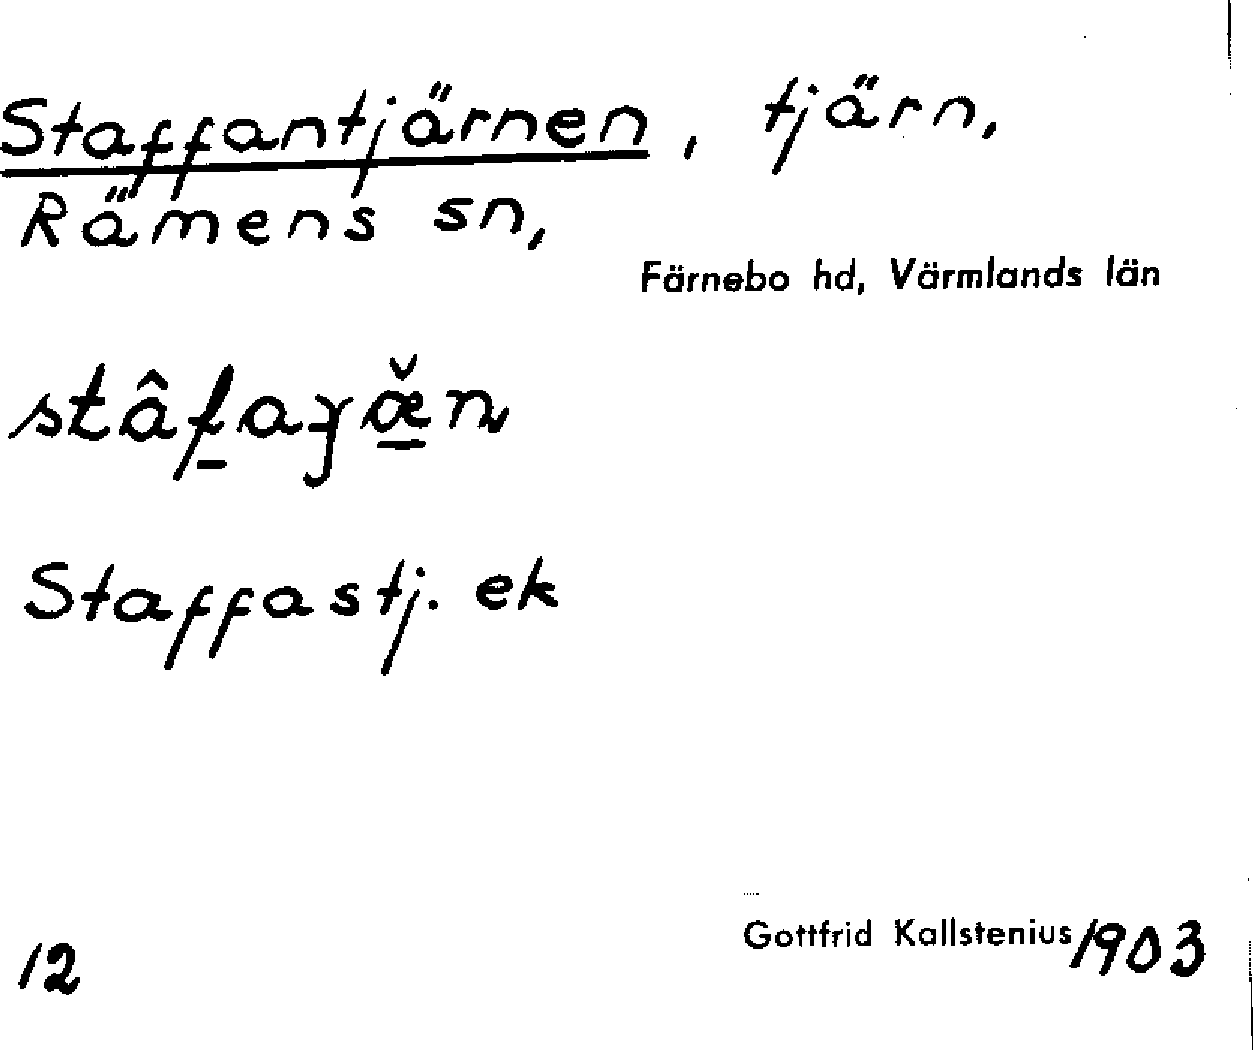 Staffantjärnen, tjärn,
Rämens sn,
Färnebo hd, Värmlands län
Staffastj. ek
Gottfrid Kallstenius 1903
12